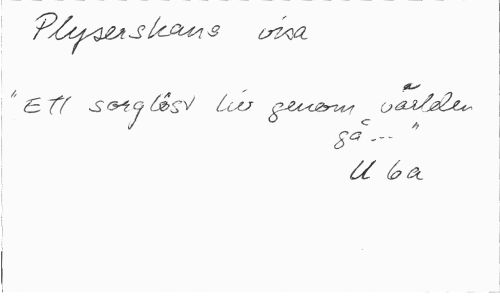 Plyserskans visa
"Ett sorglöst liv genom världen
gå..."
U 6a